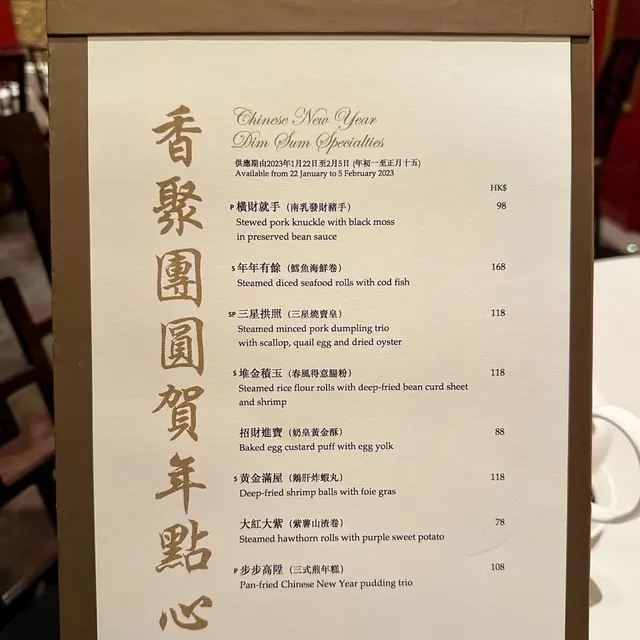 香聚團圓賀年點心
Chinese New Year
Dim Sum Specialties
供應期由2023年1月22日至2月5日 (年初一至正月十五)
Available from 22 January to 5 February 2023
HK$
P 橫財就手 (南乳發財豬手) 98
Stewed pork knuckle with black moss
in preserved bean sauce
S 年年有餘 (鱈魚海鮮卷) 168
Steamed diced seafood rolls with cod fish
SP 三星拱照 (三星燒賣皇) 118
Steamed minced pork dumpling trio
with scallop, quail egg and dried oyster
S 堆金積玉 (春風得意腸粉) 118
Steamed rice flour rolls with deep-fried bean curd sheet
and shrimp
招財進寶 (奶皇黃金酥) 88
Baked egg custard puff with egg yolk
S 黃金滿屋 (鵝肝炸蝦丸) 118
Deep-fried shrimp balls with foie gras
大紅大紫 (紫薯山渣卷) 78
Steamed hawthorn rolls with purple sweet potato
P 步步高陞 (三式煎年糕) 108
Pan-fried Chinese New Year pudding trio